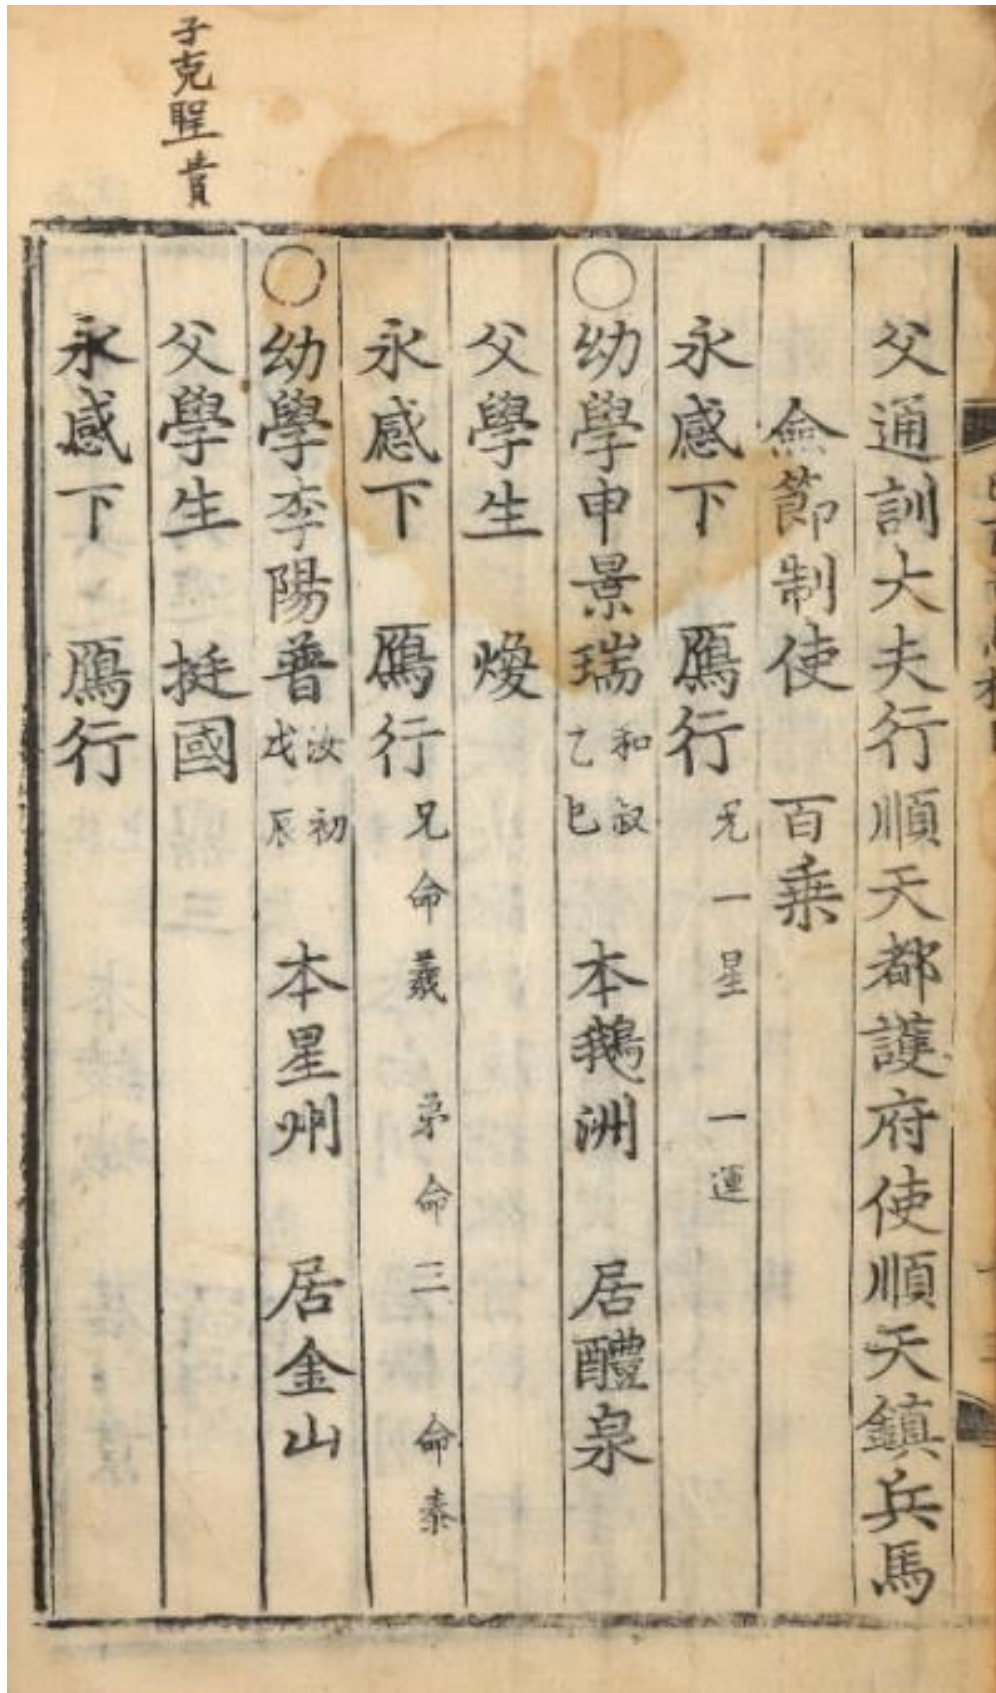 父通訓大夫行順天都護府使順天鎮兵馬
僉節制使 百乗
永感下 鴈行 兄一星 一運
○幼學申景瑞 和叔 乙巳 本鵝洲 居醴泉
父學生 煥
永感下 鴈行 兄命羲 弟命三 命泰
○幼學李陽普 汝初 戊辰 本星州 居金山
父學生 挺國
永感下 鴈行
子克